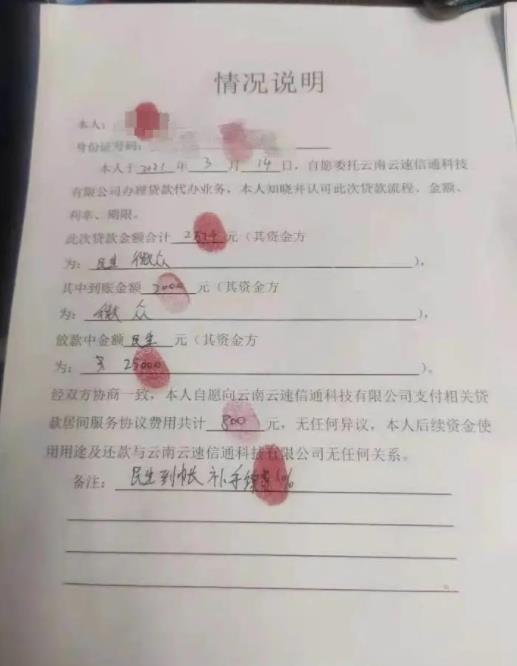 情况说明
本人:
身份证号码:
本人于2021年3月14日，自愿委托云南云速信通科技
有限公司办理贷款代办业务，本人知晓并认可此次贷款流程、金额、
利率、期限。
此次贷款金额合计 元（其资金方
为: 民生 微众 ），
其中到账金额 2000 元（其资金方
为: 微众 ），
放款中金额 民生 元（其资金方
为: 25000 ）。
经双方协商一致，本人自愿向云南云速信通科技有限公司支付相关贷
款居间服务协议费用共计 800 元，无任何异议，本人后续资金使
用用途及还款与云南云速信通科技有限公司无任何关系。
备注: 民生到帐 补手续费